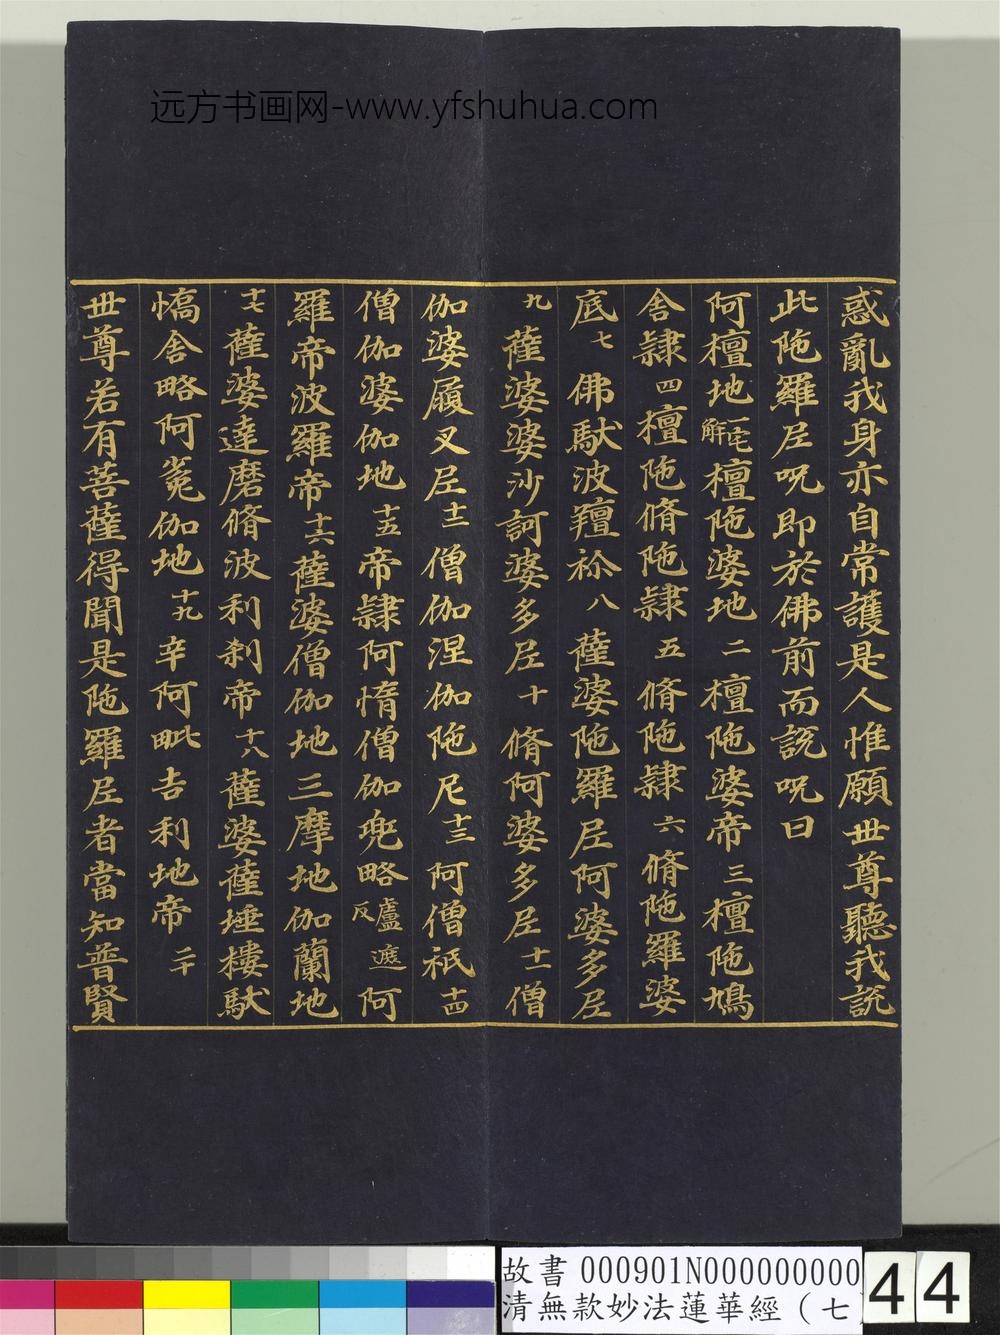 远方书画网-www.yfshuhua.com
惑亂我身亦自常護是人惟願世尊聽我說
此陁羅尼呪即於佛前而說呪曰
阿檀地一它解檀陁婆地二檀陁婆帝三檀陁鳩
舍隸四檀陁脩陁隸五脩陁隸六脩陁羅婆
底七佛馱波羶祢八薩婆陁羅尼阿婆多尼
九薩婆婆沙訶婆多尼十脩阿婆多尼十一僧
伽婆履叉尼十二僧伽涅伽陁尼十三阿僧祇十四
僧伽婆伽地十五帝隸阿惰僧伽兜略盧遮反阿
羅帝波羅帝十六薩婆僧伽地三摩地伽蘭地
十七薩婆達磨脩波利刹帝十八薩婆薩埵樓馱
憍舍略阿㝹伽地十九辛阿毗吉利地帝二十
世尊若有菩薩得聞是陁羅尼者當知普賢
故書 000901N000000000
清無款妙法蓮華經（七
44